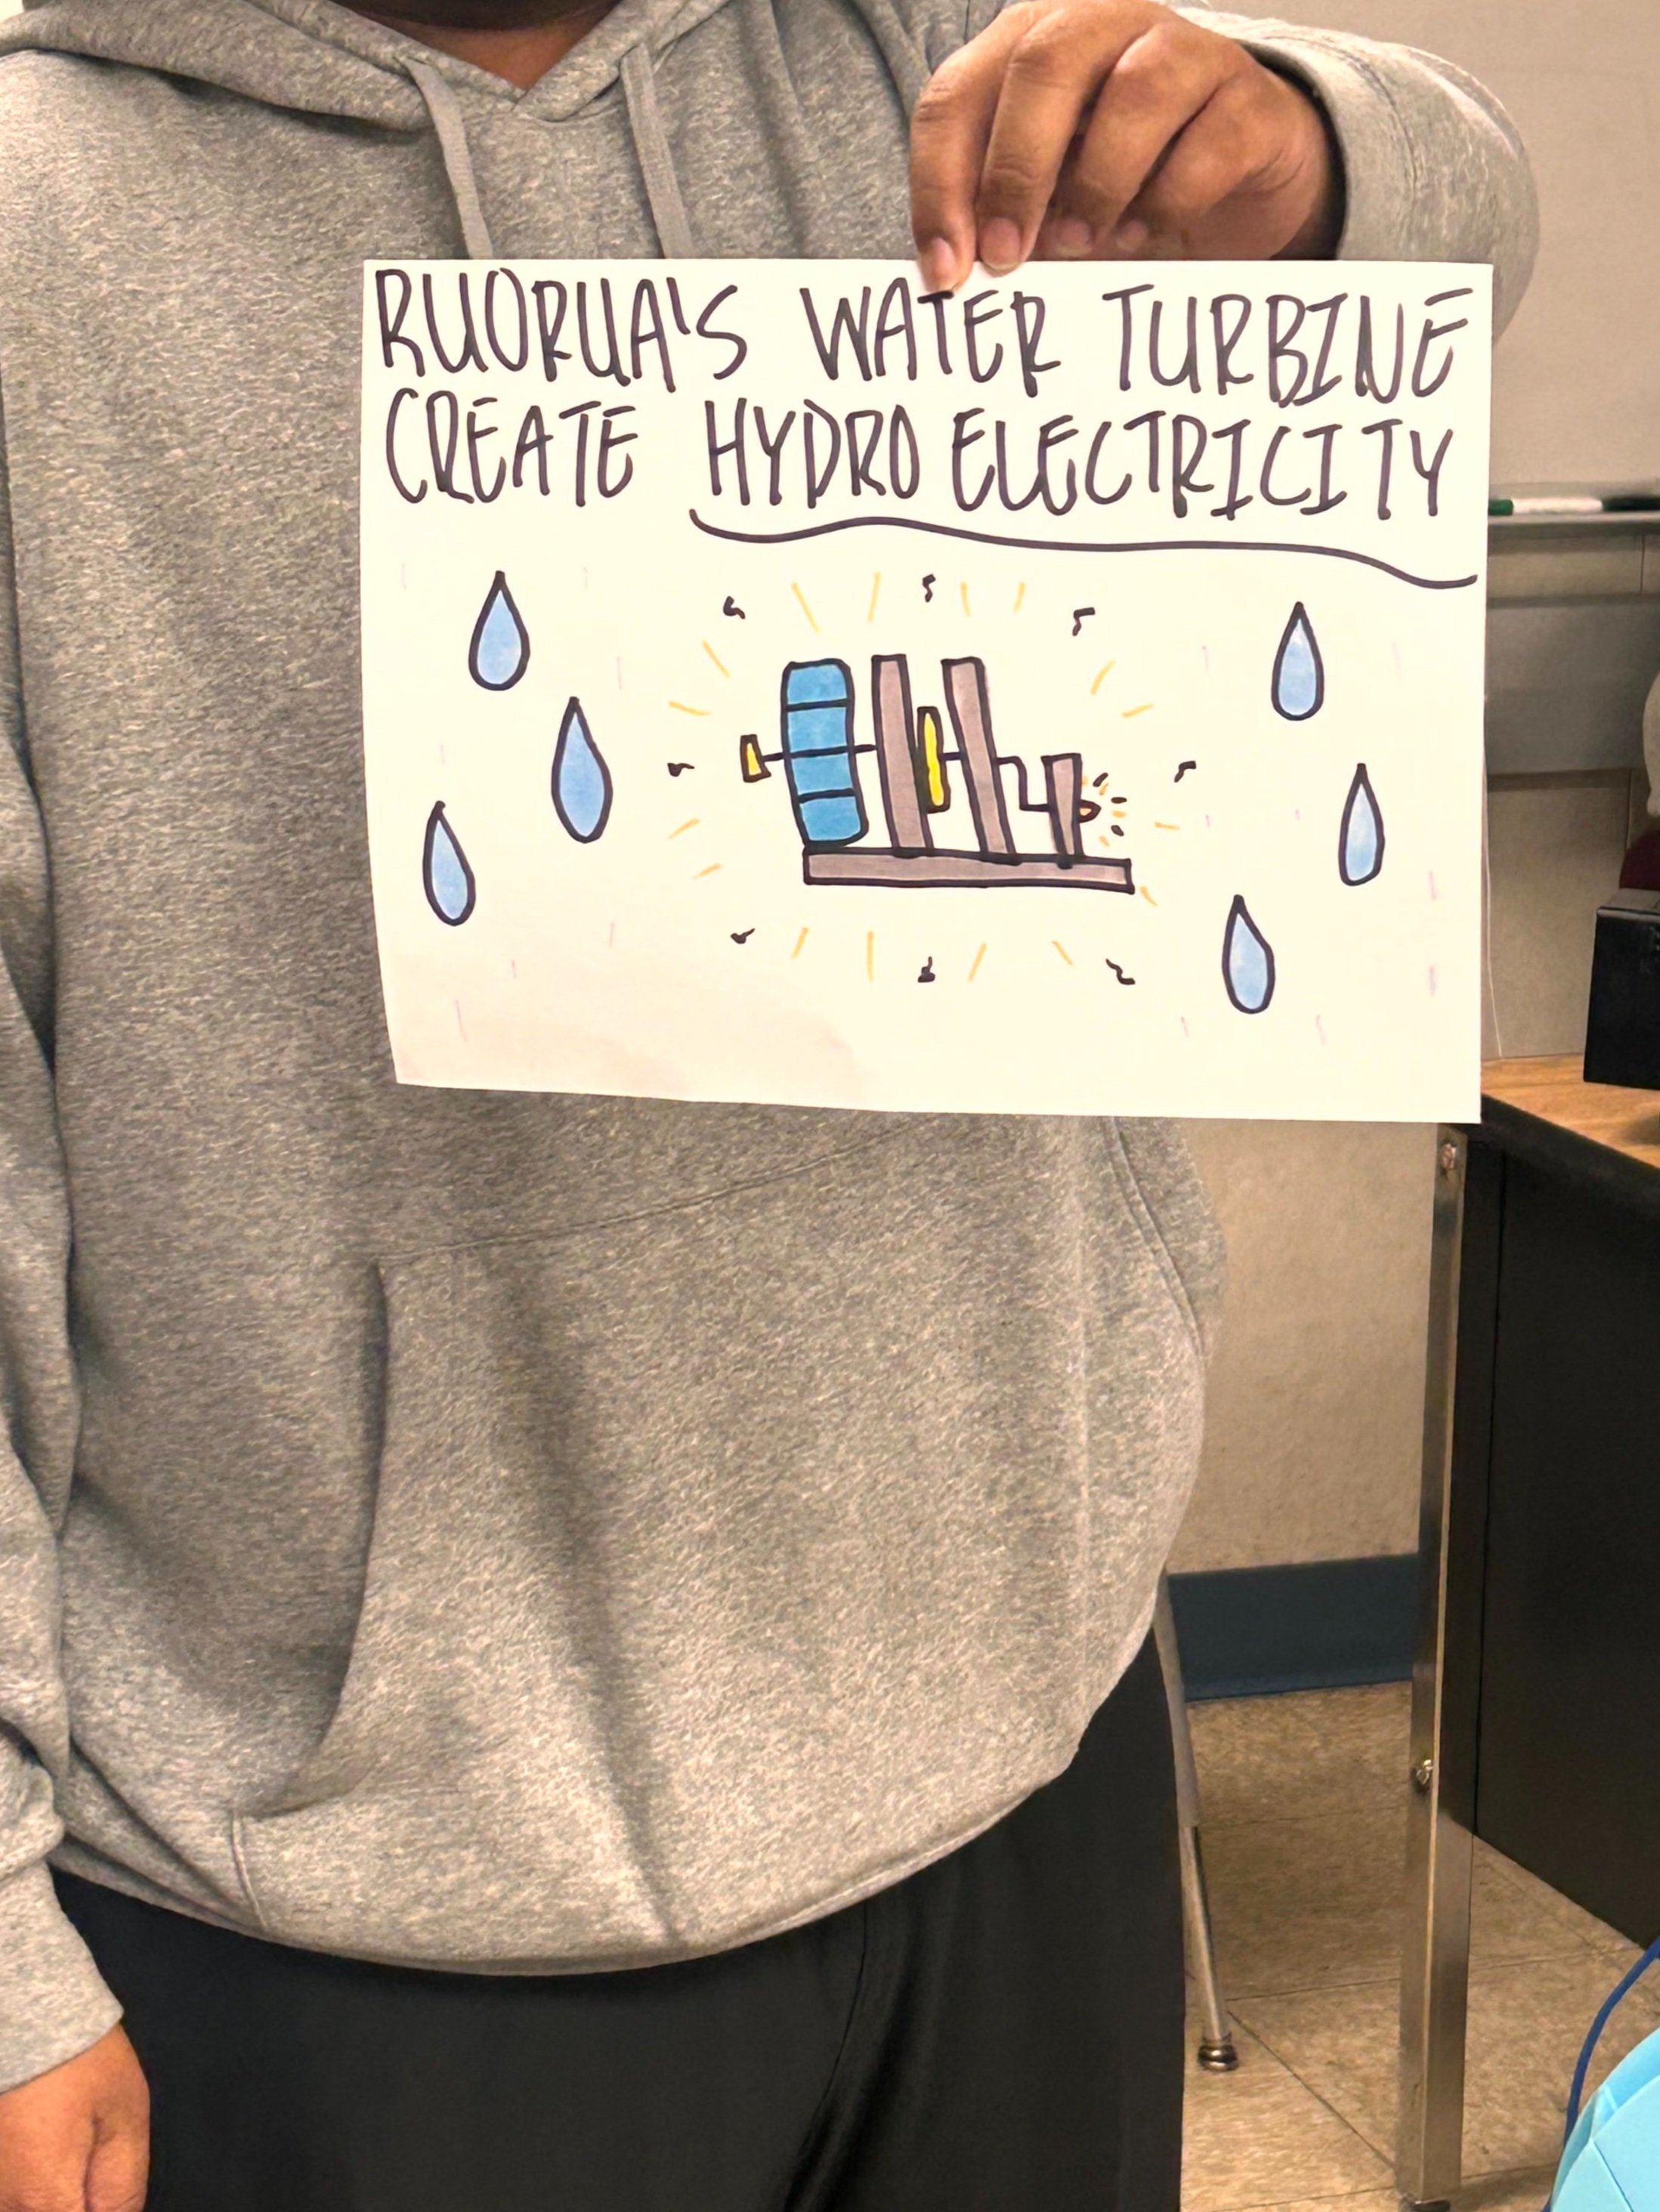 RUORUA'S WATER TURBINE
CREATE HYDRO ELECTRICITY